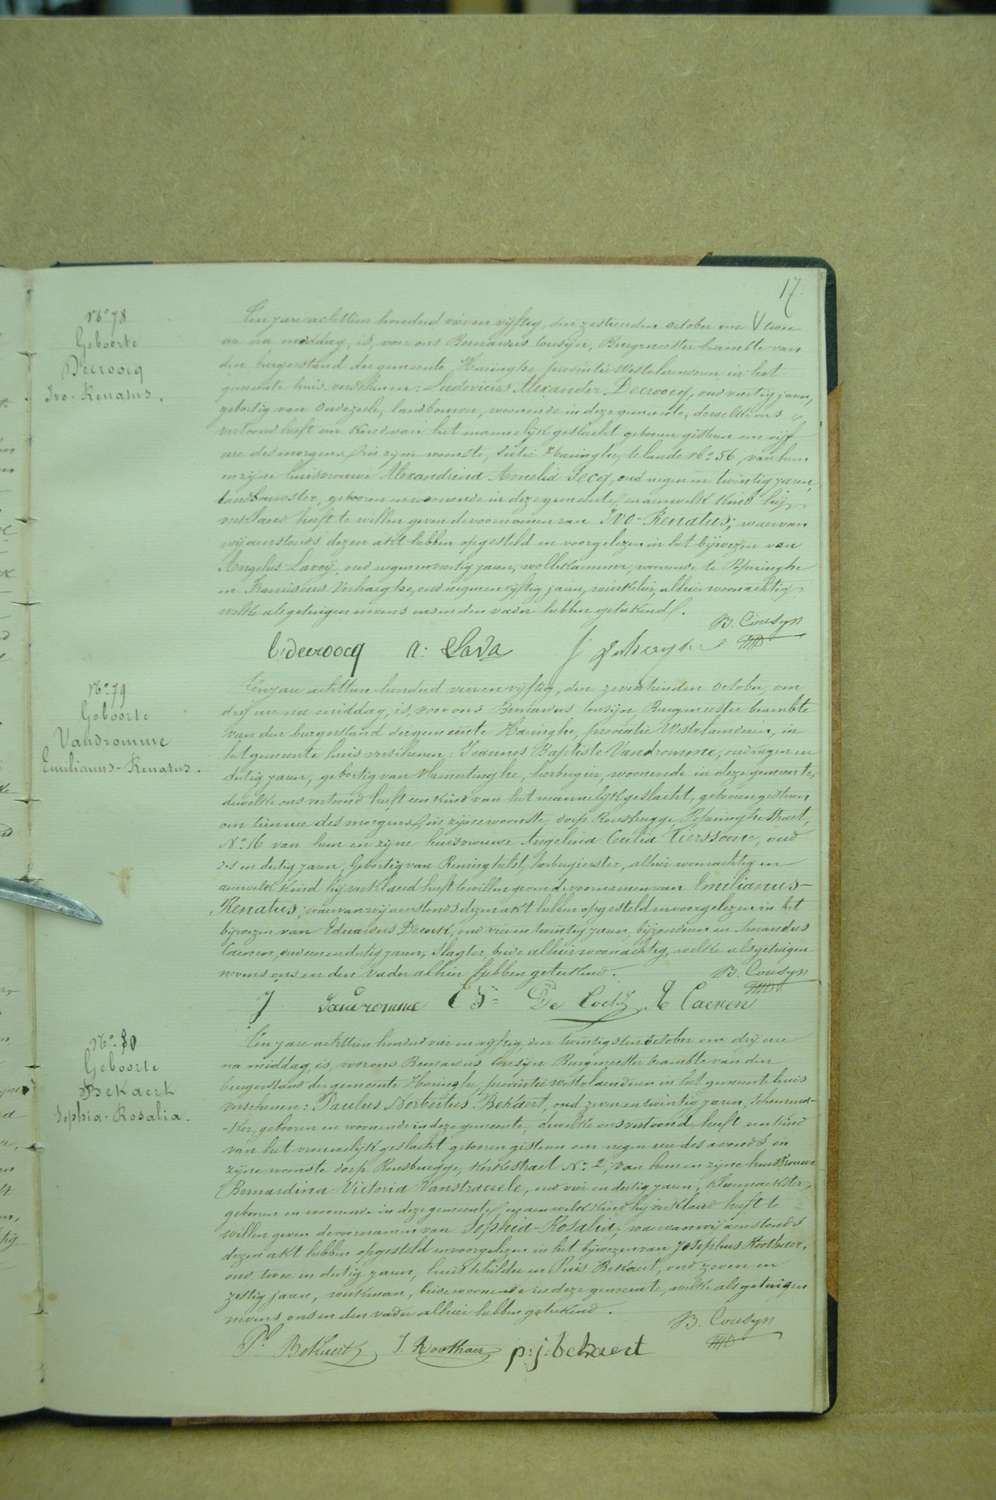 17
No 78
Geboorte
Decroocq
Ivo-Renatus.
Ten jare achttien honderd vier en vijftig, den zestienden october om twee
ure na middag, is, voor ons Bernardus Cousijn, Burgemeester beambte van
den burgerstand der gemeente Haringhe provintie Westvlaanderen in het
gemeente huis verschenen: Ludovicus Alexander Decroocq, oud veertig jaren,
gebortig van Oudezeele, landbouwer, woonende in deze gemeente, dewelke ons
vertoond heeft een kind van het mannelijk geslacht geboren gisteren om vijf
ure des morgens, in zijne woonste, sectie Haringhe, te lande No 56, van hem
en zijne huisvrouwe Alexandrina Amelia Jecq, oud negen en twintig jaren,
landbouwster, geboren en woonende in deze gemeente, en aan welk kind hij
verklaard heeft te willen geven de voornamen van Ivo-Renatus, waervan
wij aenstonds dezen akt hebben opgesteld en voorgelezen in het bijwezen van
Angelus Lavoij, oud negen en veertig jaren, wollekammer, woonende te Haringhe
en Franciscus Verhaeghe, oud negen en vijftig jaren, winkelier, alhier woonachtig
welke als getuigen nevens ons en den vader hebben geteekend.
B. Cousyn
l. decroocq a: Lava
No 79
Geboorte
Vandromme
Emilianus-Renatus.
Ten jare achttien honderd vier en vijftig, den zeventienden october, om
drij ure na middag, is, voor ons Bernardus Cousijn Burgemeester beambte
van den burgerstand der gemeente Haringhe, provintie Westvlaanderen, in
het gemeente huis verschenen: Joannes Baptiste Vandromme, oud negen en
dertig jaren, gebortig van Vlamertinghe, herbergier, woonende in deze gemeente,
dewelke ons vertoond heeft een kind van het mannelijk geslacht, geboren gisteren
om tien ure des morgens, in zijne woonste, dorp Rousbrugge, Haringhe straet,
No 16 van hem en zijne huisvrouwe Angelina Cecilia Tierssoone, oud
zes en dertig jaren, Gebortig van Reninghelst, herbergierster, alhier woonachtig en
aen welk kind hij verklaerd heeft te willen geven de voornamen van Emilianus-
Renatus, waervan wij aenstonds dezen akt hebben opgesteld en voorgelezen in het
bijwezen van Eduardus Decock, oud vier en twintig jaren, bijzondere en Amandus
Caenen, oud een en dertig jaren, slagter, beide alhier woonachtig, welke als getuigen
nevens ons en den vader alhier hebben geteekend.
B. Cousyn
J Vandromme Ed De Cock A. Caenen
No 80
Geboorte
Bekaert
Sophia-Rosalia.
Ten jare achttien honderd vier en vijftig, den twintigsten october om drij ure
na middag, is, voor ons Bernardus Cousijn Burgemeester beambte van den
burgerstand der gemeente Haringhe, provintie Westvlaanderen in het gemeente huis
verschenen: Paulus Norbertus Bekaert, oud zeven en twintig jaren, schoenma-
-ker, geboren en woonende in deze gemeente, dewelke ons vertoond heeft een kind
van het vrouwelijk geslacht geboren gisteren om negen ure des avonds, in
zijne woonste dorp Rousbrugge, Kerkestraet No 2, van hem en zijne huisvrouwe
Bernardina Victoria Vanstraeseele, oud vier en dertig jaren,
geboren en woonende in deze gemeente, en aen welk kind hij verklaerd heeft te
willen geven de voornamen van Sophia-Rosalia, waervan wij aenstonds
dezen akt hebben opgesteld en voorgelezen in het bijwezen van Josephus Koothoor,
oud twee en dertig jaren, huisschilder en Luis Bekaert, oud zeven en
zestig jaren, werkman, beide woonende in deze gemeente, welke als getuigen
nevens ons en den vader alhier hebben geteekend.
B. Cousyn
Pl Bekaert J. Koothoor p: j: bekaert